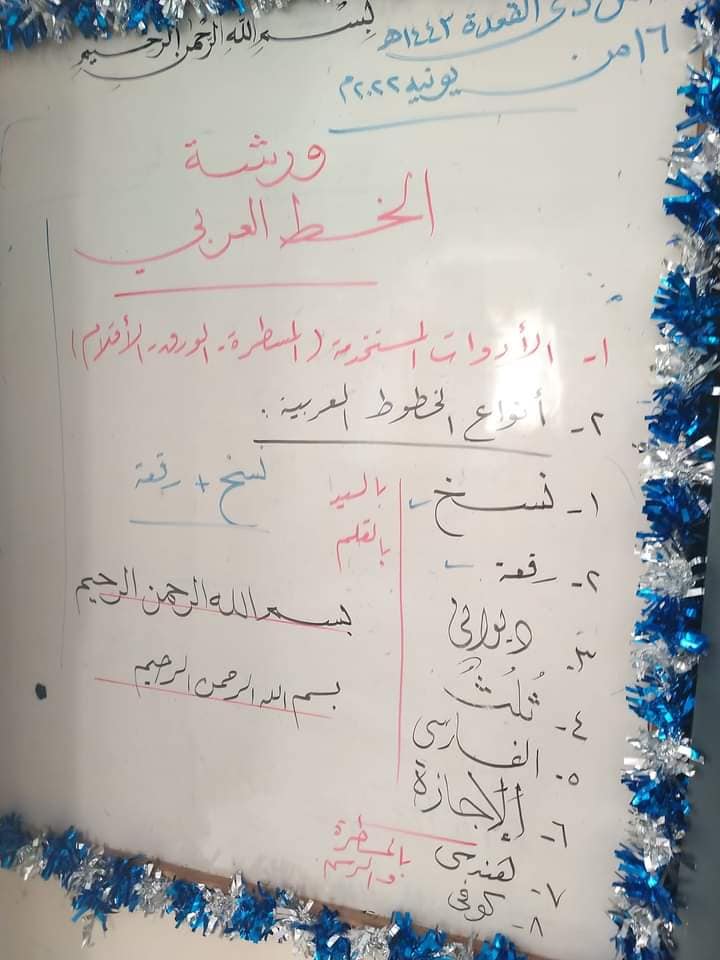 بسم الله الرحمن الرحيم
من ذي القعدة ١٤٤٣هـ
١٦ من يونيه ٢٠٢٢م
ورشة
الخط العربي
١- الأدوات المستخدمة (المسطرة - الورق - الأقلام)
٢- أنواع الخطوط العربية:
١- نسخ
٢- رقعة
٣- ديواني
٤- ثُلُث
٥- الفارسي
٦- الإجازة
٧- هندسي
٨- كوفي
باليد
بالقلم
بالمسطرة
والرسم
نسخ + رقعة
بسم الله الرحمن الرحيم
بسم الله الرحمن الرحيم